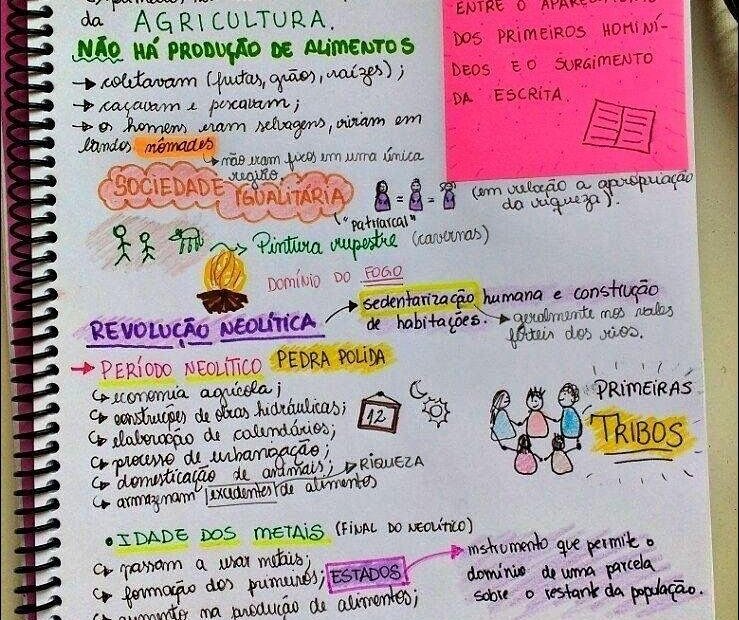 da AGRICULTURA.
NÃO HÁ PRODUÇÃO DE ALIMENTOS
→ coletavam (frutas, grãos, raízes);
→ caçavam e pescavam;
→ os homens eram selvagens, viviam em
bandos nômades
↳ não eram fixos em uma única
região.
SOCIEDADE IGUALITÁRIA
= =
(em relação a apropriação
da riqueza).
("patriarcal")
→ Pintura rupestre (cavernas)
DOMÍNIO DO FOGO
REVOLUÇÃO NEOLÍTICA → sedentarização humana e construção
de habitações. → geralmente nos vales
férteis dos rios.
→ PERÍODO NEOLÍTICO PEDRA POLIDA
↳ economia agrícola;
↳ construções de obras hidráulicas;
↳ elaboração de calendários;
↳ processo de urbanização;
↳ domesticação de animais; → RIQUEZA
↳ armazenam excedentes de alimentos
12
PRIMEIRAS
TRIBOS
• IDADE DOS METAIS (FINAL DO NEOLÍTICO)
↳ passam a usar metais;
↳ formação dos primeiros; ESTADOS
↳ aumento na produção de alimentos;
→ instrumento que permite o
domínio de uma parcela
sobre o restante da população.
ENTRE O
DOS PRIMEIROS HOMINÍ-
DEOS E O SURGIMENTO
DA ESCRITA.